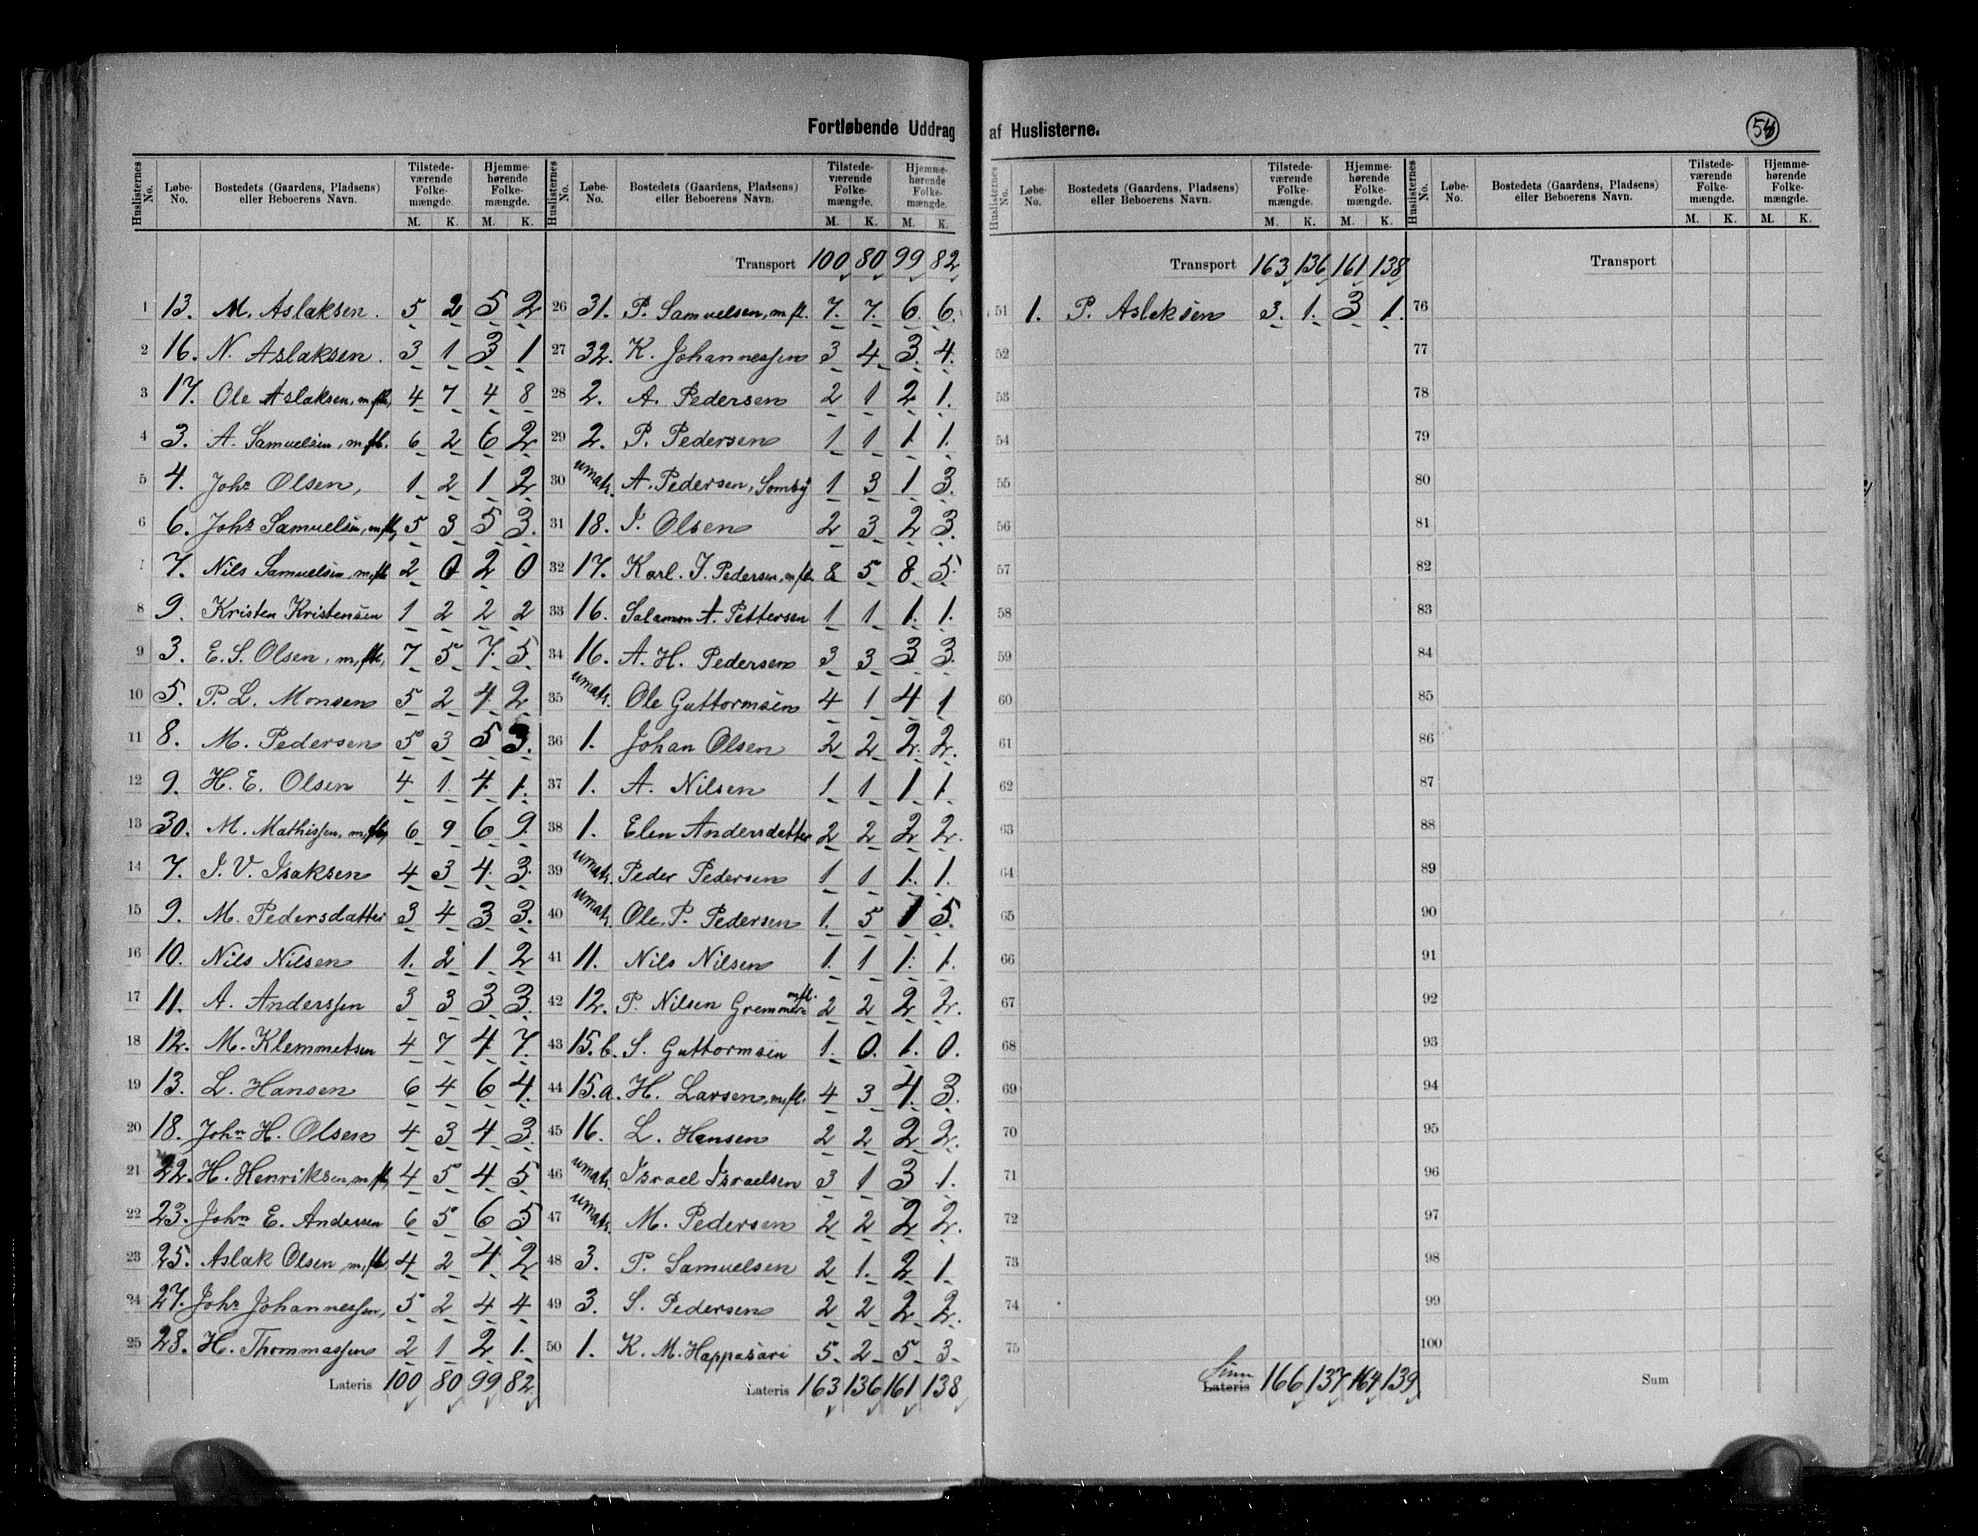 Fortløbende Uddrag af Huslisterne.
54
Huslisternes No. | Løbe-No. | Bostedets (Gaardens, Pladsens) eller Beboerens Navn. | Tilstedeværende Folkemængde. M. K. | Hjemmehørende Folkemængde. M. K.
1 13. M. Aslaksen. 5 2 5 2
2 16. N. Aslaksen. 3 1 3 1
3 17. Ole Aslaksen, m. fl., 4 7 4 8
4 3. A. Samuelsen, m. fl. 6 2 6 2
5 4. Johs Olsen, 1 2 1 2
6 6. Johs Samuelsen, m. fl, 5 3 5 3.
7. Nils Samuelsen, m. fl. 2 0 2 0
8 9. Kristen Kristensen 1 2 2 2
9 3. E. S. Olsen, m. fl., 7 5 7. 5
10 5. P. L. Monsen 5 2 4 2
11 8. M. Pedersen 5 3 5 3.
12 9. H. E. Olsen 4 1. 4 1.
13 30. M. Mathissen, m. fl, 6 9 6 9.
14 7. I. V. Isaksen 4 3 4. 3.
15 9. M. Pedersdatter 3 4 3 3.
16 10. Nils Nilsen 1. 2 1 2
17 11. A. Anderssen 3 3 3 3.
18 12. M. Klemmetsen 4 7 4 7.
19 13. L. Hansen 6 4 6 4.
20 18. John H. Olsen 4 3 4 3.
21 22. H. Henriksen, m. fl, 4 5 4 5
22 23. John E. Andersen 6 5 6 5
23 25. Aslak Olsen, m. fl. 4 2 4 2
24 27. Johs Johannessen, 5 2 4 4
25 28. H. Thommassen 2 1 2 1.
Lateris 100 80 99 82
Huslisternes No. | Løbe-No. | Bostedets (Gaardens, Pladsens) eller Beboerens Navn. | Tilstedeværende Folkemængde. M. K. | Hjemmehørende Folkemængde. M. K.
Transport 100 80 99 82
26 31. P. Samuelsen, m. fl. 7. 7. 6 6.
27 32. K. Johannessen 3 4 3. 4.
28 2. A. Pedersen 2 1 2 1.
29 2. P. Pedersen 1 1 1. 1.
30 umatr. A. Pedersen, Somby 1 3 1 3.
31 18. I. Olsen 2 3 2 3.
32 17. Karl. I. Pedersen, m. fl. 8 5 8 5.
33 16. Salamon A. Pettersen 1 1 1. 1.
34 16. A. H. Pedersen 3 3 3 3.
35 umatr. Ole Guttormsen 4 1 4 1
36 1. Johan Olsen 2 2 2. 2.
37 1. A. Nilsen 1 1 1 1.
38 1. Elen Andersdatter 2 2 2 2.
39 umatr. Peder Pedersen 1 1 1. 1.
40 umatr. Ole. P. Pedersen 1. 5 1 5.
41 11. Nils Nilsen 1. 1 1. 1.
42 12. P. Nilsen Gremmer m. fl. 2 2 2 2.
43 15. b. S. Guttormsen 1. 0. 1. 0.
44 15. a. H. Larsen, m. fl. 4 3 4. 3.
45 16. L. Hansen 2 2 2 2.
46 umatr. Israel Israelsen 3 1 3 1.
47 umatr. M. Pedersen 2 2 2 2.
48 3. P. Samuelsen 2 1. 2 1.
49 3. S. Pedersen 2 2 2 2.
50 1. K. M. Happasari 5. 2 5. 3.
Lateris 163 136 161 138
Huslisternes No. | Løbe-No. | Bostedets (Gaardens, Pladsens) eller Beboerens Navn. | Tilstedeværende Folkemængde. M. K. | Hjemmehørende Folkemængde. M. K.
Transport 163 136 161 138
51 1. P. Aslaksen 3. 1. 3 1.
52
53
54
55
56
57
58
59
60
61
62
63
64
65
66
67
68
69
70
71
72
73
74
75
Sum
Lateris 166 137 164 139
Huslisternes No. | Løbe-No. | Bostedets (Gaardens, Pladsens) eller Beboerens Navn. | Tilstedeværende Folkemængde. M. K. | Hjemmehørende Folkemængde. M. K.
Transport
76
77
78
79
80
81
82
83
84
85
86
87
88
89
90
91
92
93
94
95
96
97
98
99
100
Sum